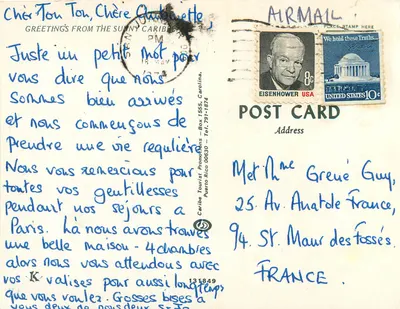 Cher Ton Ton, Chère
GREETINGS FROM THE SUNNY CARIBBEAN
Juste un petit mot pour
vous dire que nous
sommes bien arrivés
et nous commençons de
prendre une vie regulière
Nous vous remercions pour
toutes vos gentillesses
pendant nos séjours a
Paris. Là nous avons trouvés
une belle maison - 4 chambres
alors nous vous attendons avec
vos valises pour aussi longtemps
que vous voulez. Gosses bises à
vous deux de nous deux
K
PM
Caribe Tourist Promotions - Box 1555, Carolina,
Puerto Rico 00630 - Tel. 791-1874
135849
AIRMAIL
PLACE STAMP HERE
8c
EISENHOWER USA
We hold these Truths...
UNITED STATES 10c
POST CARD
Address
M et Mme Grené Guy,
25. Av. Anatole France,
94. St. Maur des Fossés.
FRANCE.